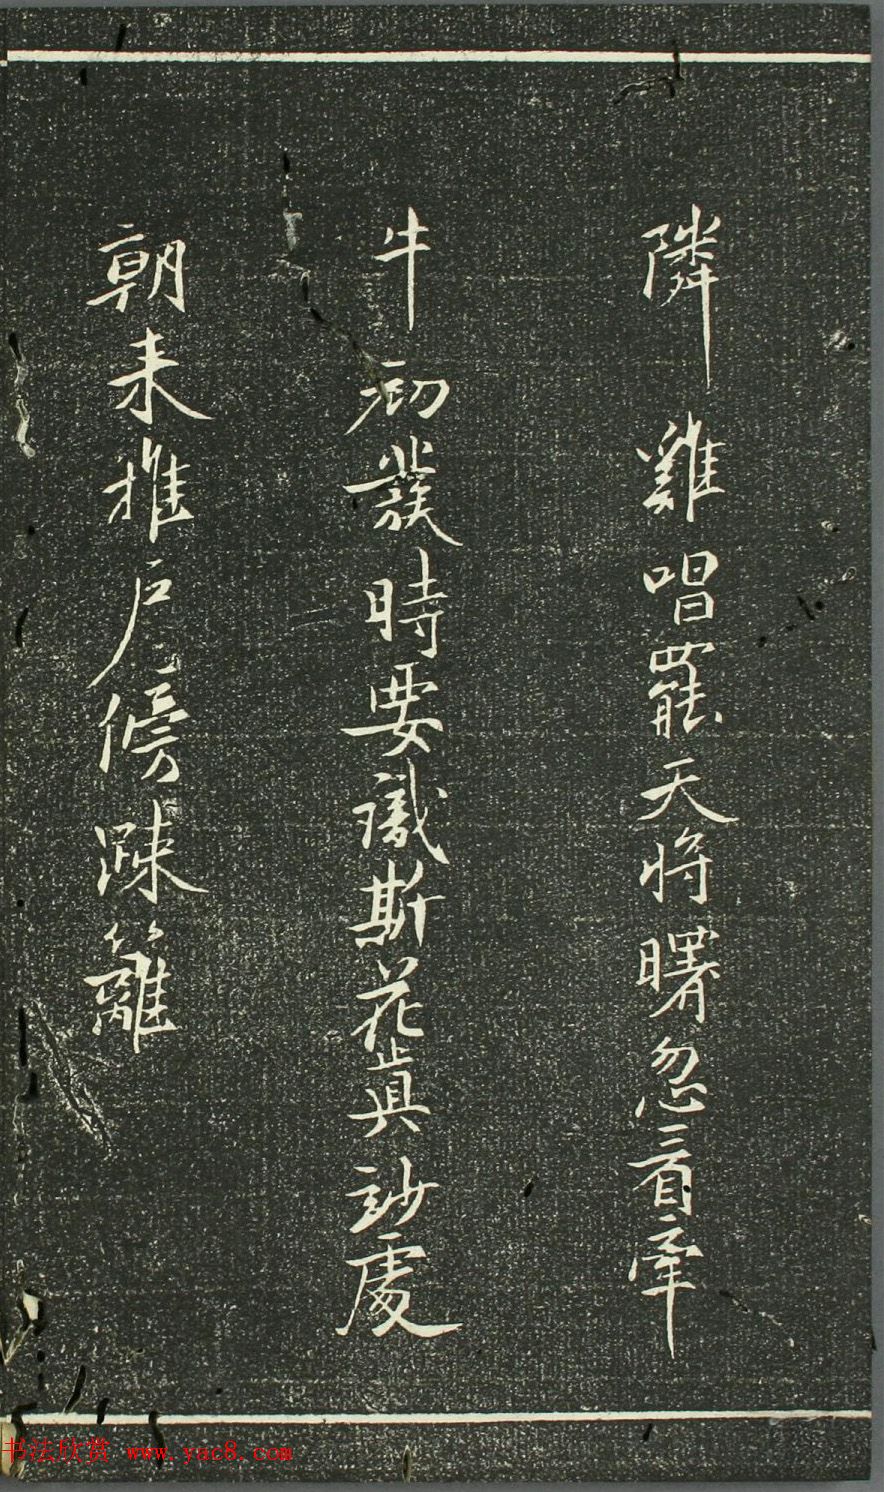 隣雞唱罷天將曙忽看牽
牛初發時要識斯花真妙處
朝来推戶傍疎籬
书法欣赏 www.yac8.com